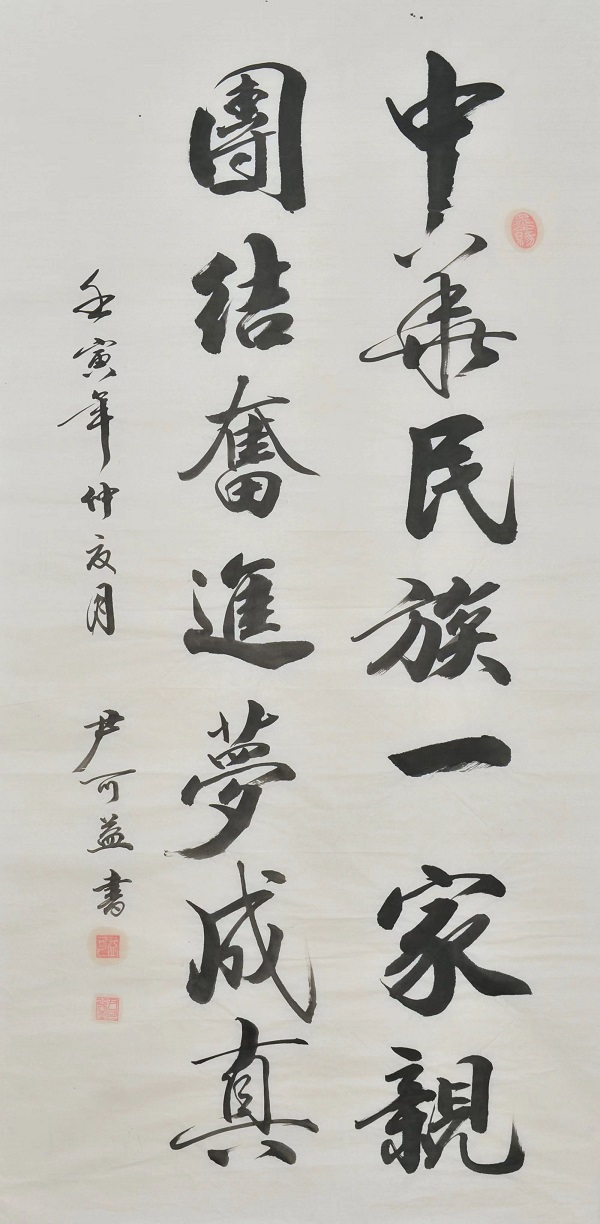 中華民族一家親
團结奮進夢成真
壬寅年仲夏月
尹可益書